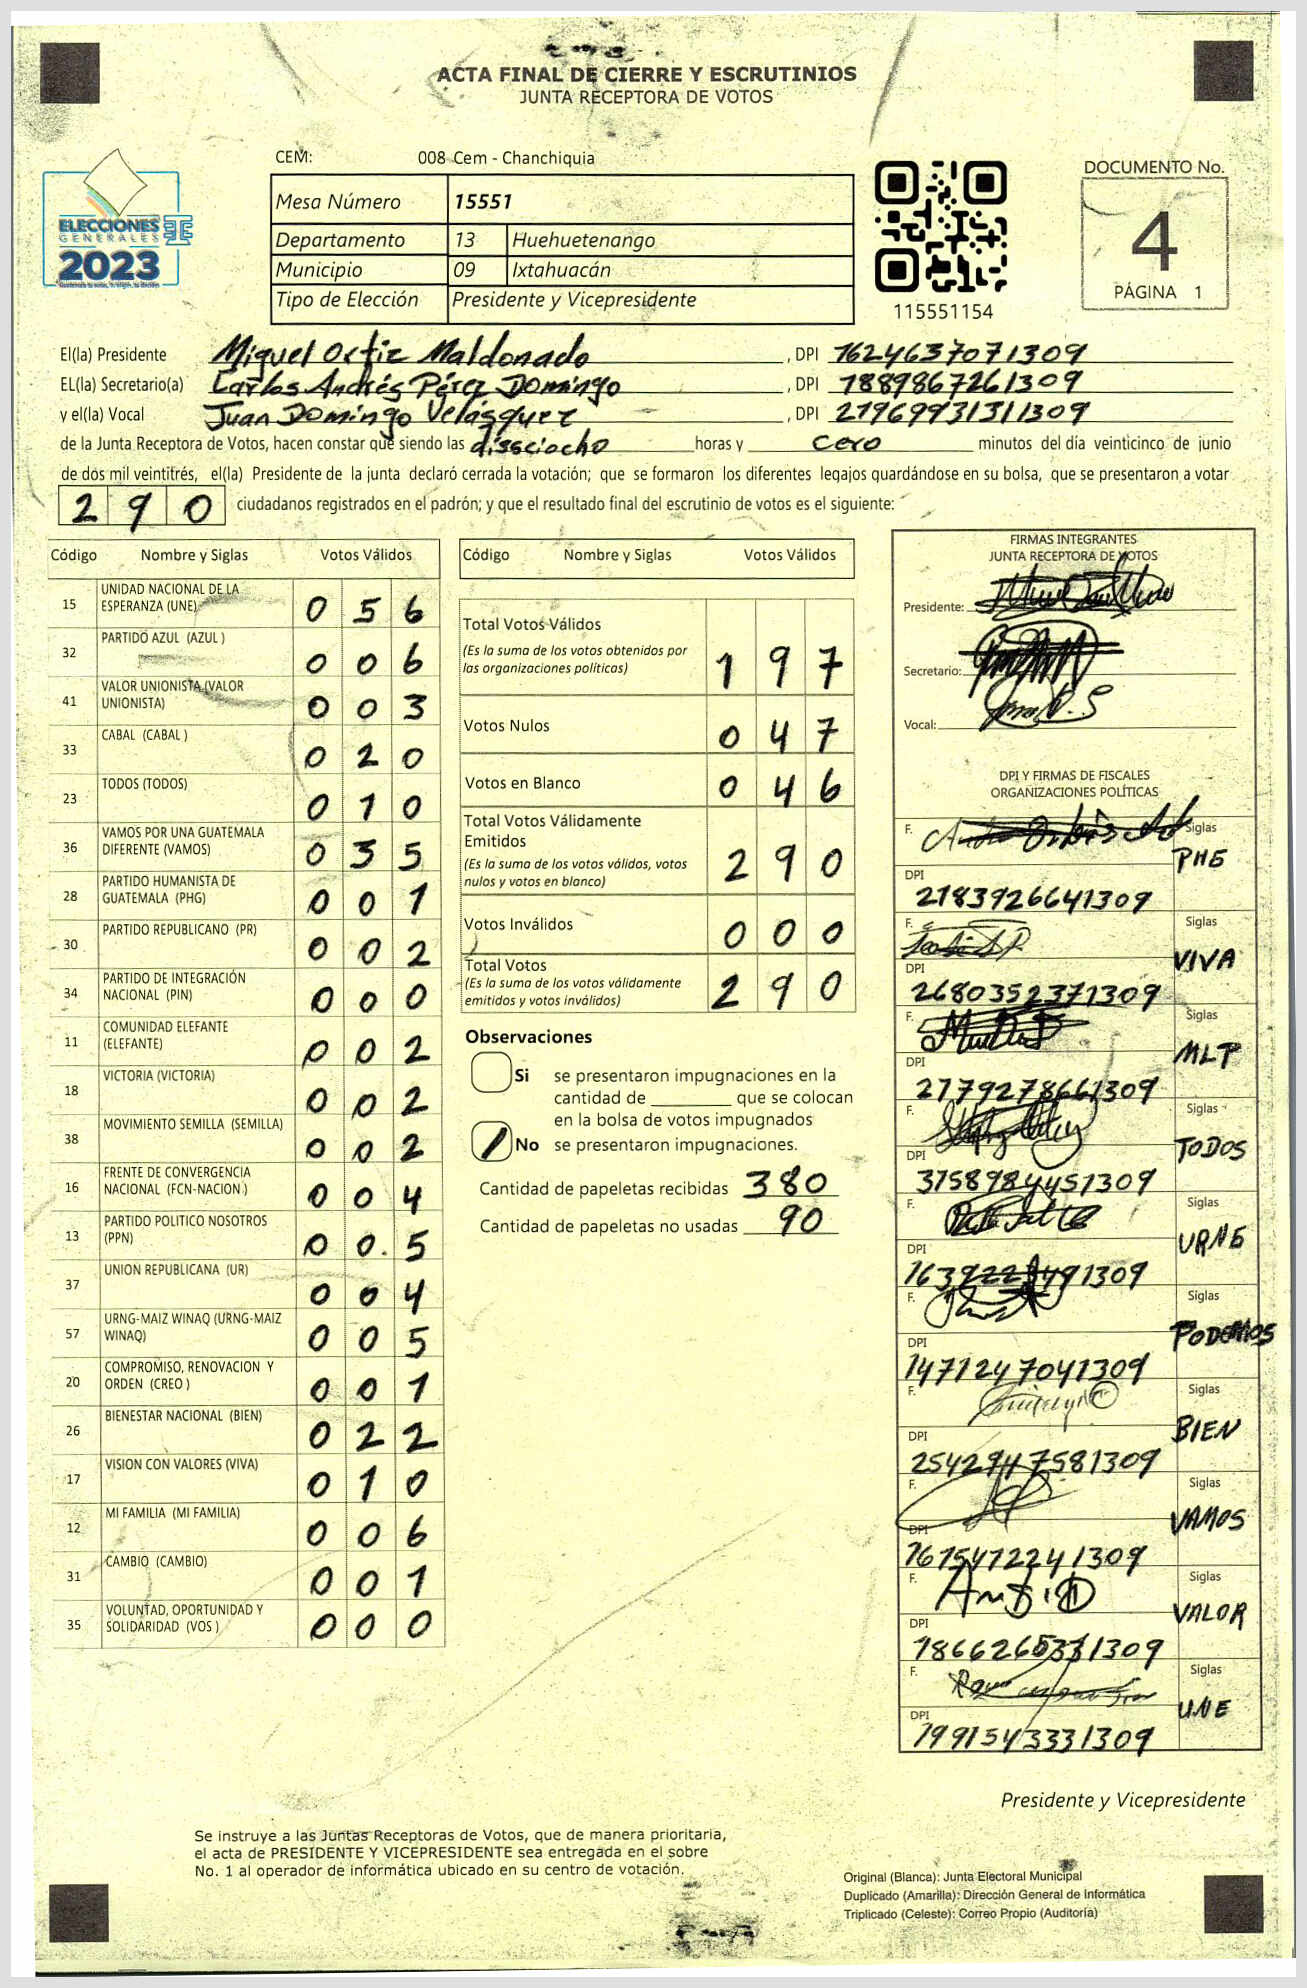 ACTA FINAL DE CIERRE Y ESCRUTINIOS
JUNTA RECEPTORA DE VOTOS
CEM: 008 Cem - Chanchiquia
Mesa Número 15551
Departamento 13 Huehuetenango
Municipio 09 Ixtahuacán
Tipo de Elección Presidente y Vicepresidente
ELECCIONES
GENERALES
2023
115551154
DOCUMENTO No.
4
PÁGINA 1
El(la) Presidente Miguel Ortiz Maldonado, DPI 1624637071309
EL(la) Secretario(a) Carlos Andrés Pérez Domingo, DPI 1889867261309
y el(la) Vocal Juan Domingo Velásquez, DPI 2796993131309
de la Junta Receptora de Votos, hacen constar que siendo las dissciocho horas y cero minutos del día veinticinco de junio
de dos mil veintitrés, el(la) Presidente de la junta declaró cerrada la votación; que se formaron los diferentes legajos guardándose en su bolsa, que se presentaron a votar
290 ciudadanos registrados en el padrón; y que el resultado final del escrutinio de votos es el siguiente:
Código Nombre y Siglas Votos Válidos
15 UNIDAD NACIONAL DE LA ESPERANZA (UNE) 0 5 6
32 PARTIDO AZUL (AZUL ) 0 0 6
41 VALOR UNIONISTA (VALOR UNIONISTA) 0 0 3
33 CABAL (CABAL ) 0 2 0
23 TODOS (TODOS) 0 1 0
36 VAMOS POR UNA GUATEMALA DIFERENTE (VAMOS) 0 3 5
28 PARTIDO HUMANISTA DE GUATEMALA (PHG) 0 0 1
30 PARTIDO REPUBLICANO (PR) 0 0 2
34 PARTIDO DE INTEGRACIÓN NACIONAL (PIN) 0 0 0
11 COMUNIDAD ELEFANTE (ELEFANTE) 0 0 2
18 VICTORIA (VICTORIA) 0 0 2
38 MOVIMIENTO SEMILLA (SEMILLA) 0 0 2
16 FRENTE DE CONVERGENCIA NACIONAL (FCN-NACION ) 0 0 4
13 PARTIDO POLITICO NOSOTROS (PPN) 0 0. 5
37 UNION REPUBLICANA (UR) 0 0 4
57 URNG-MAIZ WINAQ (URNG-MAIZ WINAQ) 0 0 5
20 COMPROMISO, RENOVACION Y ORDEN (CREO ) 0 0 1
26 BIENESTAR NACIONAL (BIEN) 0 2 2
17 VISION CON VALORES (VIVA) 0 1 0
12 MI FAMILIA (MI FAMILIA) 0 0 6
31 CAMBIO (CAMBIO) 0 0 1
35 VOLUNTAD, OPORTUNIDAD Y SOLIDARIDAD (VOS ) 0 0 0
Código Nombre y Siglas Votos Válidos
Total Votos Válidos 1 9 7
(Es la suma de los votos obtenidos por
las organizaciones políticas)
Votos Nulos 0 4 7
Votos en Blanco 0 4 6
Total Votos Válidamente
Emitidos 2 9 0
(Es la suma de los votos válidos, votos
nulos y votos en blanco)
Votos Inválidos 0 0 0
Total Votos 2 9 0
(Es la suma de los votos válidamente
emitidos y votos inválidos)
Observaciones
Si se presentaron impugnaciones en la
cantidad de ________ que se colocan
en la bolsa de votos impugnados
No se presentaron impugnaciones.
Cantidad de papeletas recibidas 380
Cantidad de papeletas no usadas 90
FIRMAS INTEGRANTES
JUNTA RECEPTORA DE VOTOS
Presidente:
Secretario:
Vocal:
DPI Y FIRMAS DE FISCALES
ORGANIZACIONES POLÍTICAS
F. Siglas PHG
DPI 2183926641309
F. Siglas VIVA
DPI 2680352371309
F. Siglas MLP
DPI 2779278661309
F. Siglas TODOS
DPI 3758984451309
F. Siglas URNG
DPI
F. Siglas PODEMOS
DPI 1471247041309
F. Siglas BIEN
DPI 2542947581309
F. Siglas VAMOS
DPI 1675472241309
F. Siglas VALOR
DPI 1866265331309
F. Siglas UNE
DPI 1991543331309
Presidente y Vicepresidente
Se instruye a las Juntas Receptoras de Votos, que de manera prioritaria,
el acta de PRESIDENTE Y VICEPRESIDENTE sea entregada en el sobre
No. 1 al operador de informática ubicado en su centro de votación.
Original (Blanca): Junta Electoral Municipal
Duplicado (Amarilla): Dirección General de Informática
Triplicado (Celeste): Correo Propio (Auditoría)